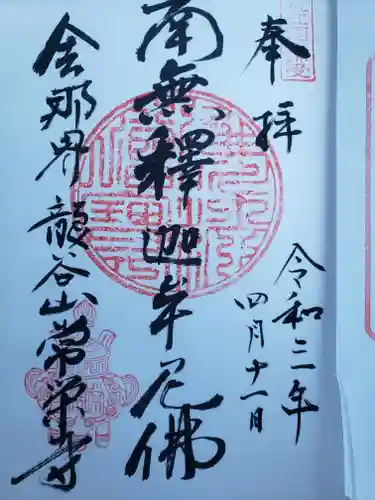 奉拝
令和三年
四月十一日
南無釋迦牟尼佛
舎那界 龍谷山 常栄寺